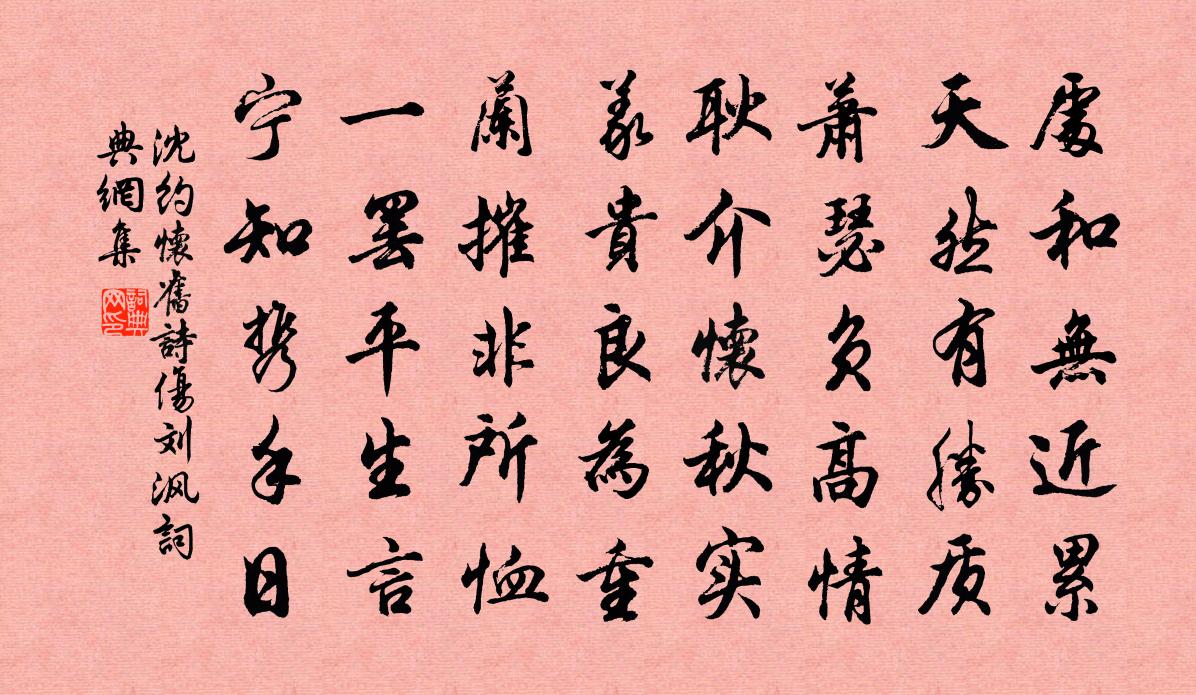 處和無近累
天然有勝质
蕭瑟负高情
耿介懷秋实
義貴良為重
蘭摧非所恤
一罢平生言
宁知携手日
沈約懷舊詩傷刘沨詞
典網集
詞典网印